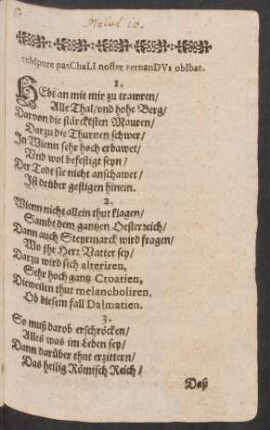 Melod 10.
TeMpore pasChaLI noster FernanDVs obIbat.
1.
HEbt an mit mir zu trawren/
Alle Thal/ und hohe Berg/
Darvon die stärcksten Mauren/
Darzu die Thurnen schwer/
In Wienn sehr hoch erbawet/
Und wol befestigt seyn/
Der Tode sie nicht anschawet/
Ist drüber gestigen hinein.
2.
Wienn nicht allein thut klagen/
Sambt dem gantzen Oesterreich/
Dann auch Steyrmarck wird fragen/
Wo ihr Herr Vatter sey/
Darzu wird sich alteriren,
Sehr hoch gantz Croatien,
Dieweilen thut melancholiren,
Ob diesem fall Dalmatien.
3.
So muß darob erschröcken/
Alles was im Leben sey/
Dann darüber thut erzittern/
Das heilig Römisch Reich/
Daß